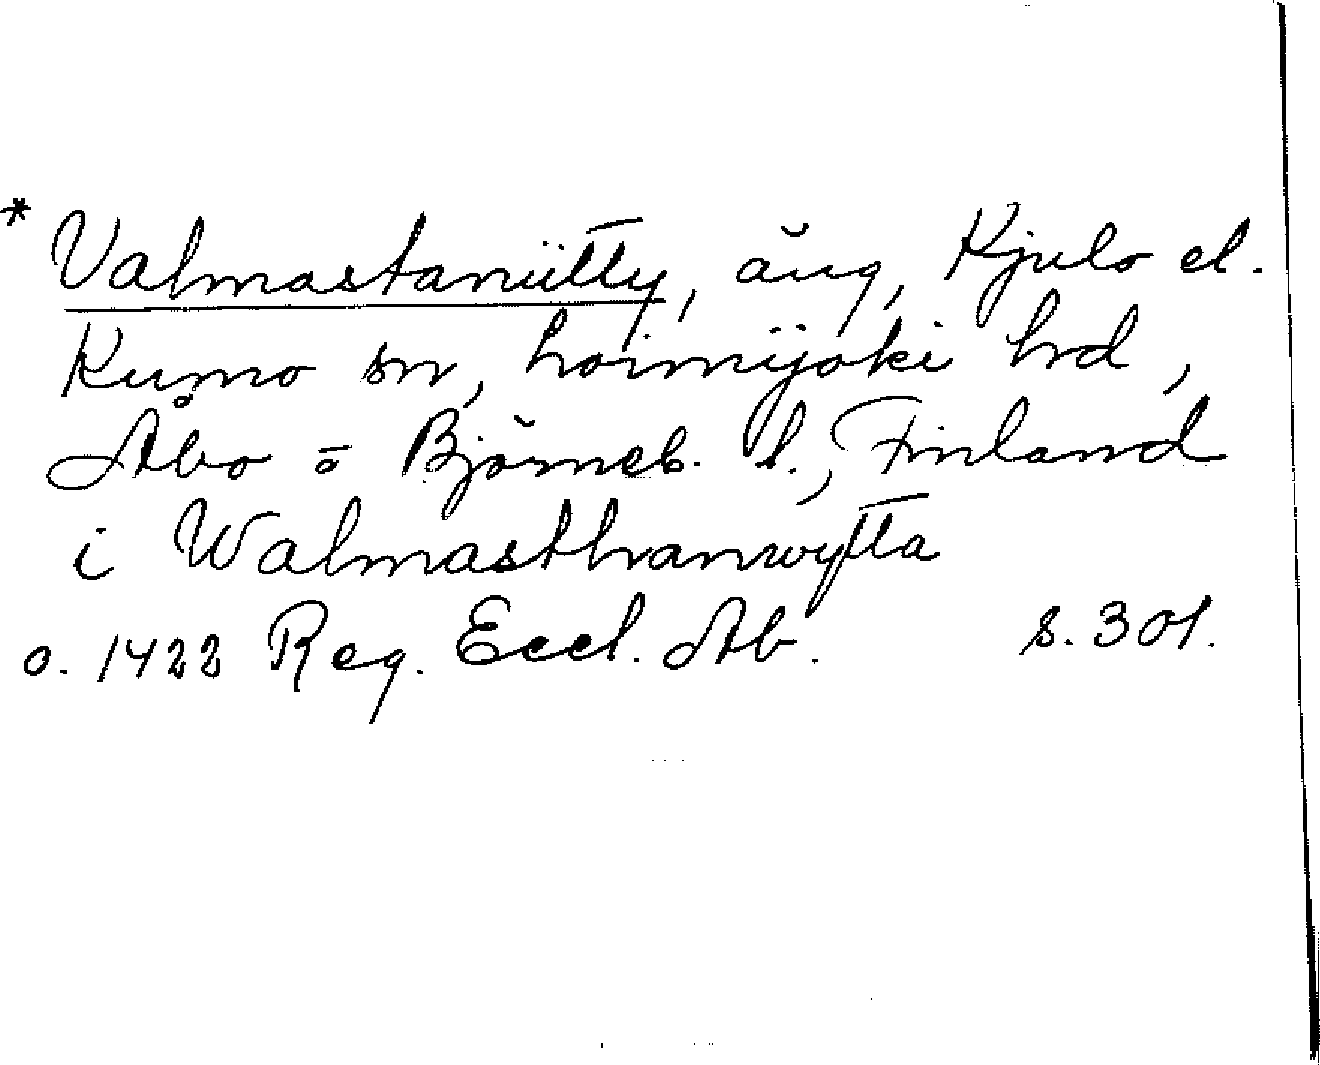 * Valmastaniitty, äng, Kjulo el.
Kumo sn, Loimijoki hrd,
Åbo o Björneb. l., Finland
i Walmasthanwytta
o. 1422 Reg. Eccl. Ab. s. 301.